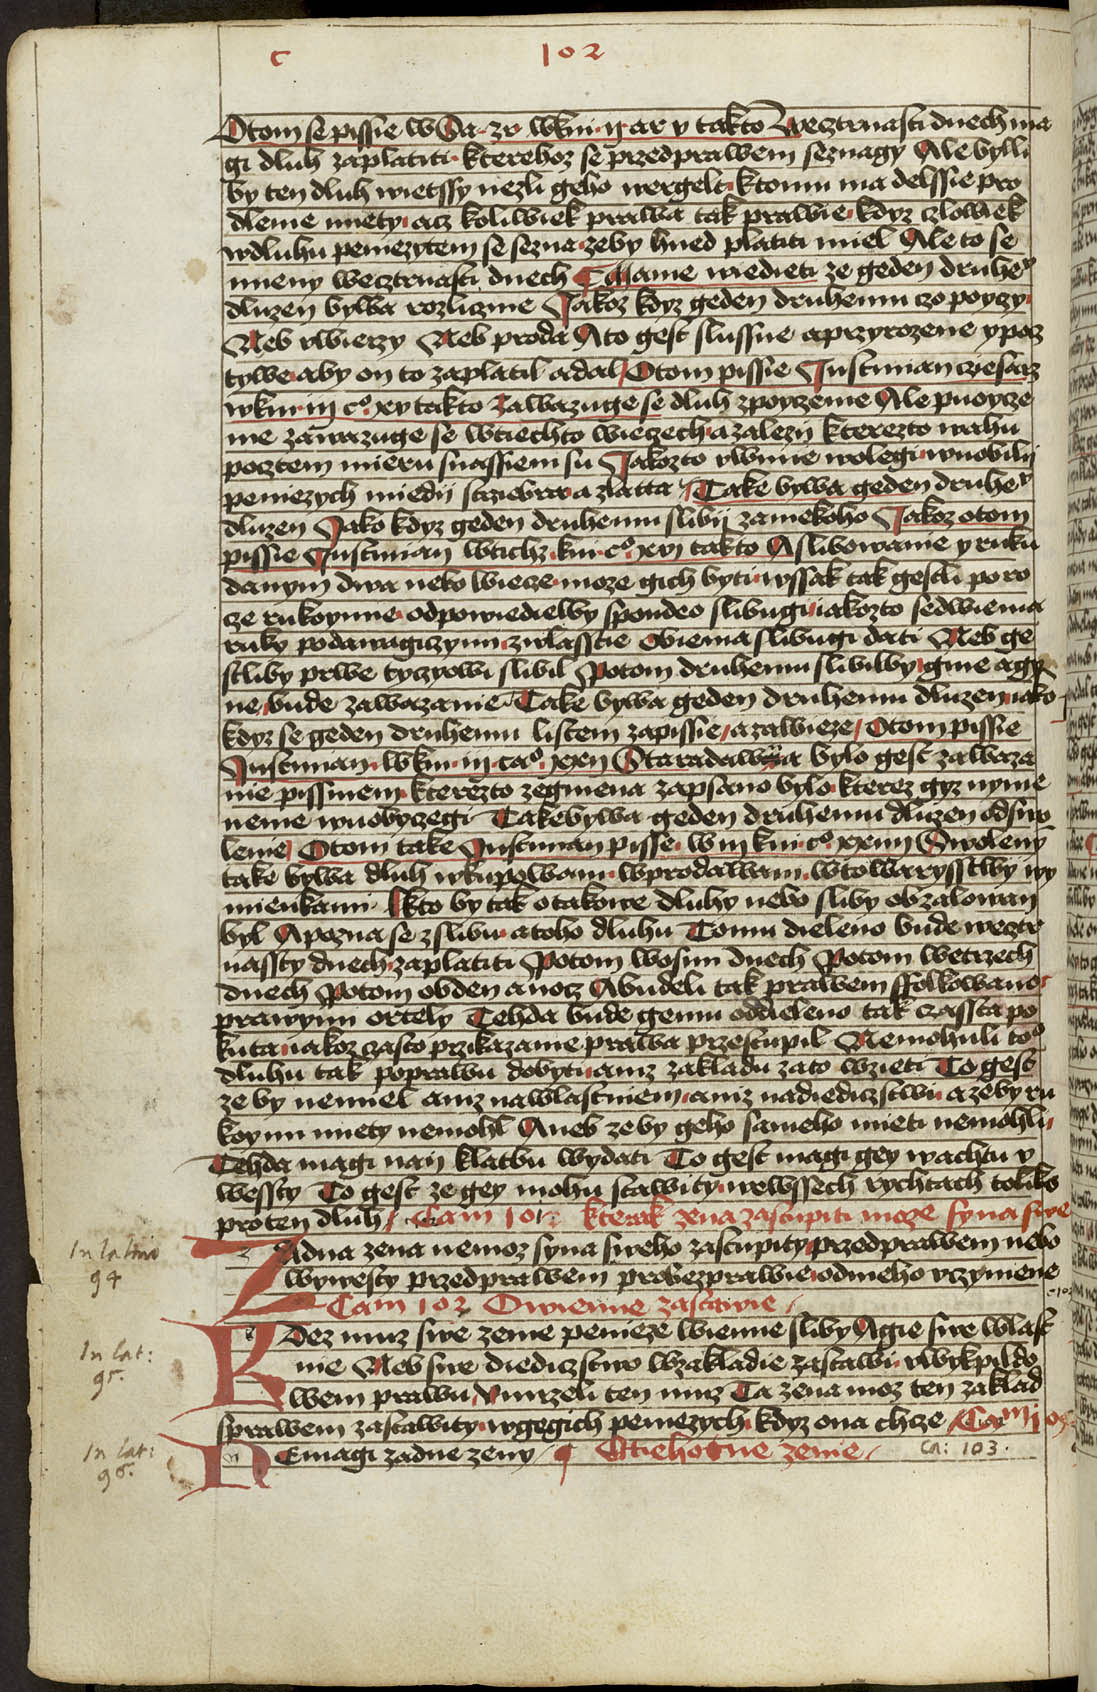 c 102
Otom se pissie w Sa zr wkni ij ar y takto Wecztrnasti dnech ma
gi dluh zaplatiti kterehoz se przed prawem seznagy Ale bylli
by ten dluh wietssy nezli geho wergelt ktomu ma delssie pro
dlenie miety acz koliwiek prawa tak prawie kdyz czlowiek
wdluhu peniezytem se sezna zeby hned platiti miel Ale to se
mieny wecztrnasti dnech Mame wiedieti ze geden druhe°
dluzen bywa rozlicznie Jakoz kdyz geden druhemu czo poyczy
Neb vwierzy Neb proda Ato gest slussne a przyrozene y pocz
tywe aby on to zaplatil a dal Otom pissie Justinian cziesarz
wkni iij c° xv takto Zawazuge se dluh zpoyczenie Ale puoycze
nie zawazuge se wtiechto wieczech a zalezy kterezto wahu
pocztem mieru snassiem su Jakozto vwinie wolegi wuobilij
peniezych miedij strziebra a zlatta Take bywa geden druhe°
dluzen Jako kdyz geden druhemu slibij zaniekoho Jakoz otom
pissie Justinian wtichz kni c° xvj takto A slibowanie y ruku
danym dwa nebo wiecze moze gich byti wssak tak gestli po ro
cze rukoymie odpowiedielby spondeo slibugi iakozto sedwiema
ruky podawagiczym zwlasstie obiema slibugi dati Neb ge
stliby prwe tyczyowi slibil Potom druhemu slibilby gine a gy
ne bude zawazanie Take bywa geden druhemu dluzen iako
kdyz se geden druhemu listem zapissie a zawieze Otom pissie
Justinian wkni iij ca° xxij Stara dawna bylo gest zawaza
nie pissmem kterezto zegmena zapsano bylo kterez gyz nynie
neme wuobyczegi Take bywa geden druhemu dluzen odswo
lenie Otom take Justinian pisse w iij kni c° xxiij Swoleny
take bywa dluh wkupowani wprodawani wtowarysstwy wy
mienkami Kto by tak otakowe dluhy nebo sliby obzalowan
byl A pozna se zslibu a toho dluhu Tomu dieleno bude wecztr
nassty dnech zaplatiti Potom wosmi dnech Potom wetrzech
dnech Potom obden a nocz A budeli tak prawem ffolkowano
prawymi ortely Tehda bude gemu oddieleno tak czassta po
kuta iakoz czasto przikazanie prawa przestupil Nemohuli to°
dluhu tak poprawu dobyti aniz zakladu zato wzieti To gest
ze by nemiel aniz nawlastniem aniz nadiedicztwu a zeby ru
koymi miety nemohl Aneb zeby geho sameho mieti nemohli
Tehda magi nan klatbu wydati To gest magi gey wachtu v
wessty To gest ze gey mohu stawity wewssech rychtach toliko
pro ten dluh Cam 101 kterak zena zastupiti moze syna swe
Zadna zena nemoz syna sweho zastupity przed prawem nebo
wywesty przed prawem pro bezprawie odnieho vczynene
Cam 102 Owienne zastawie
Kdez muz swe zenie penieze wienne sliby Agie swe wlast
nie Neb swe diedicztwo wzakladie zastawi vwykpildo
wem prawu Vmrzeli ten muz Ta zena moz ten zaklad
sprawem zastawity wgegich peniezych kdyz ona chcze Cam 103
Nemagi zadne zeny Otiehotne zenie Ca: 103.
In latino
94
In lat:
95.
In lat:
96.